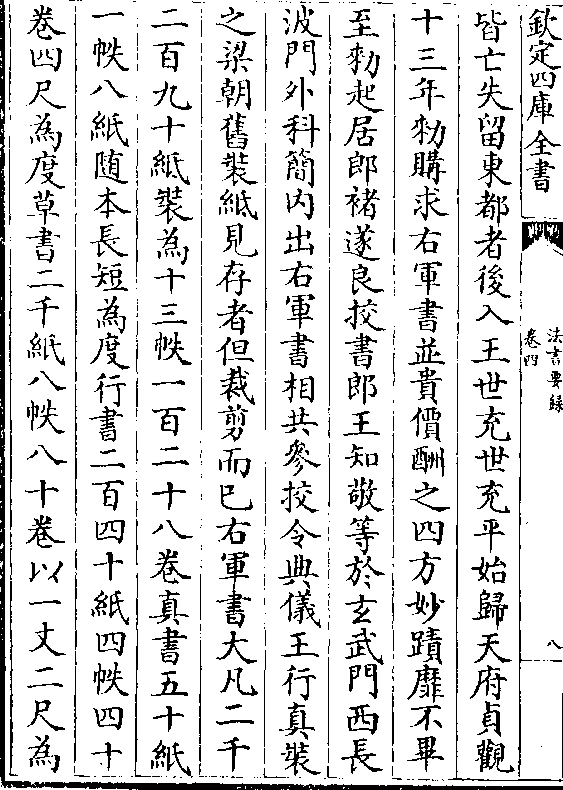 欽定四庫全書
法書要錄
卷四
八
皆亡失留東都者後入王世充世充平始歸天府貞觀
十三年勑購求右軍書並貴價酬之四方妙蹟靡不畢
至勑起居郎褚遂良挍書郎王知敬等於玄武門西長
波門外科簡内出右軍書相共參挍令典儀王行真裝
之梁朝舊裝紙見存者但裁剪而已右軍書大凡二千
二百九十紙裝為十三帙一百二十八卷真書五十紙
一帙八紙随本長短為度行書二百四十紙四帙四十
卷四尺為度草書二千紙八帙八十卷以一丈二尺為